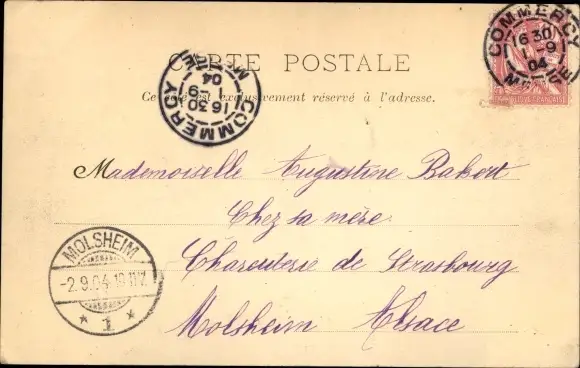 CARTE POSTALE
Ce côté est exclusivement réservé à l'adresse.
COMMERCY
16 30
1 - 9
04
MEUSE
COMMERCY
16 30
1 - 9
04
MEUSE
Mademoiselle Augustine Bakort
Chez sa mère
Charcuterie de Strasbourg
Molsheim Alsace
MOLSHEIM
-2.9.04
* 1 *